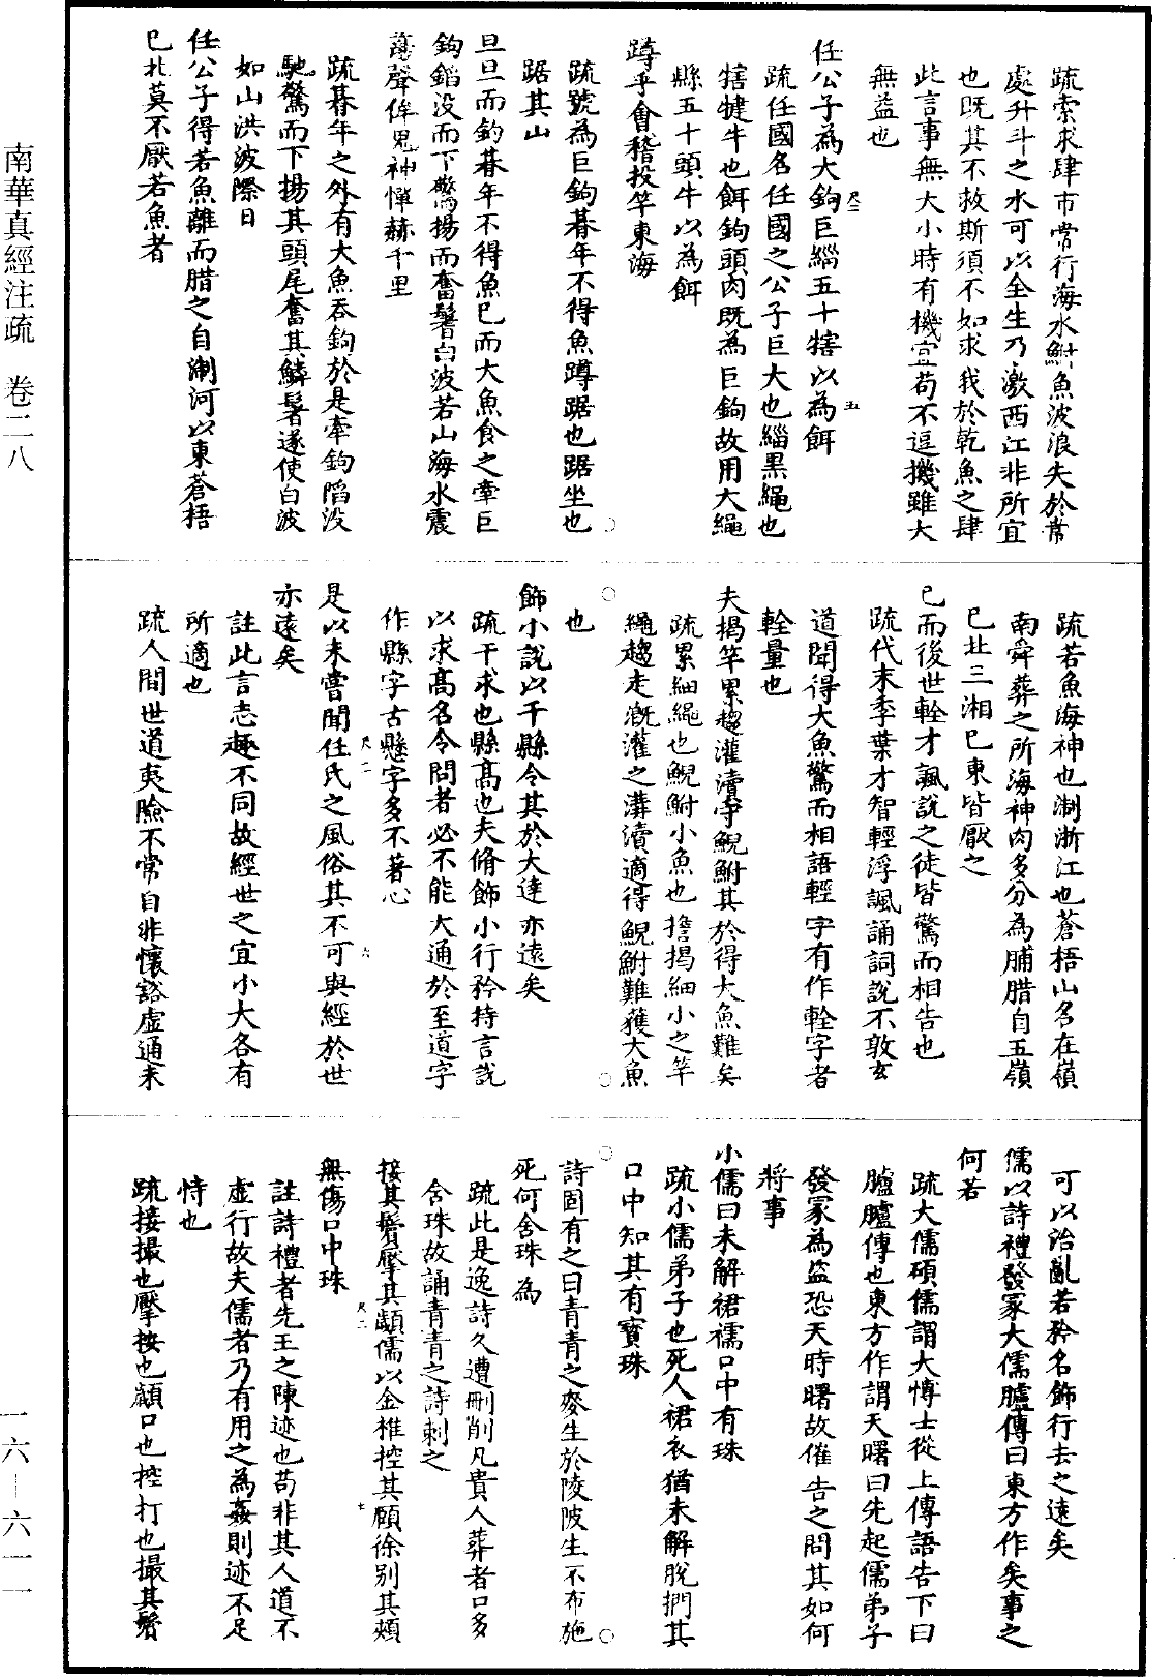 疏索求肆市常行海水鮒魚波浪失於常
處升斗之水可以全生乃激西江非所宜
也既其不救斯須不如求我於乾魚之肆
此言事無大小時有機宜苟不逗機雖大
無益也
任公子為大鉤巨緇五十犗以為餌
疏任國名任國之公子巨大也緇黑繩也
犗犍牛也餌鉤頭肉既為巨鉤故用大繩
縣五十頭牛以為餌
蹲乎會稽投竿東海
疏號為巨鉤朞年不得魚蹲踞也踞坐也
踞其山
旦旦而釣朞年不得魚已而大魚食之牽巨
鉤錎没而下驚揚而奮鬐白波若山海水震
蕩聲侔鬼神憚赫千里
疏朞年之外有大魚吞鉤於是牽鉤陷没
馳騖而下揚其頭尾奮其鱗鬐遂使白波
如山洪波際日
任公子得若魚離而腊之自淛河以東蒼梧
已北莫不厭若魚者
疏若魚海神也淛浙江也蒼梧山名在嶺
南舜葬之所海神肉多分為脯腊自五嶺
已北三湘已東皆厭之
已而後世輇才諷說之徒皆驚而相告也
疏代末季葉才智輕浮諷誦詞說不敦玄
道聞得大魚驚而相語輕字有作輇字者
輇量也
夫揭竿累趨灌瀆守鯢鮒其於得大魚難矣
疏累細繩也鯢鮒小魚也擔揭細小之竿
繩趨走溉灌之溝瀆適得鯢鮒難獲大魚
也
飾小說以干縣令其於大達亦遠矣
疏干求也縣高也夫脩飾小行矜持言說
以求高名令問者必不能大通於至道字
作縣字古懸字多不著心
是以未嘗聞任氏之風俗其不可與經於世
亦遠矣
註此言志趣不同故經世之宜小大各有
所適也
疏人間世道夷險不常自非懷豁虛通未
可以治亂若矜名飾行去之遠矣
儒以詩禮發冢大儒臚傳曰東方作矣事之
何若
疏大儒碩儒謂大博士從上傳語告下曰
臚臚傳也東方作謂天曙曰先起儒弟子
發冢為盜恐天時曙故催告之問其如何
將事
小儒曰未解裙襦口中有珠
疏小儒弟子也死人裙衣猶未解脫捫其
口中知其有寶珠
詩固有之曰青青之麥生於陵陂生不布施
死何含珠為
疏此是逸詩久遭刪削凡貴人葬者口多
含珠故誦青青之詩刺之
接其鬢擪其顪儒以金椎控其頤徐別其頰
無傷口中珠
註詩禮者先王之陳迹也苟非其人道不
虛行故夫儒者乃有用之為姦則迹不足
恃也
疏接撮也擪按也顪口也控打也撮其鬢
南華真經注疏 卷二八
一六—六一一